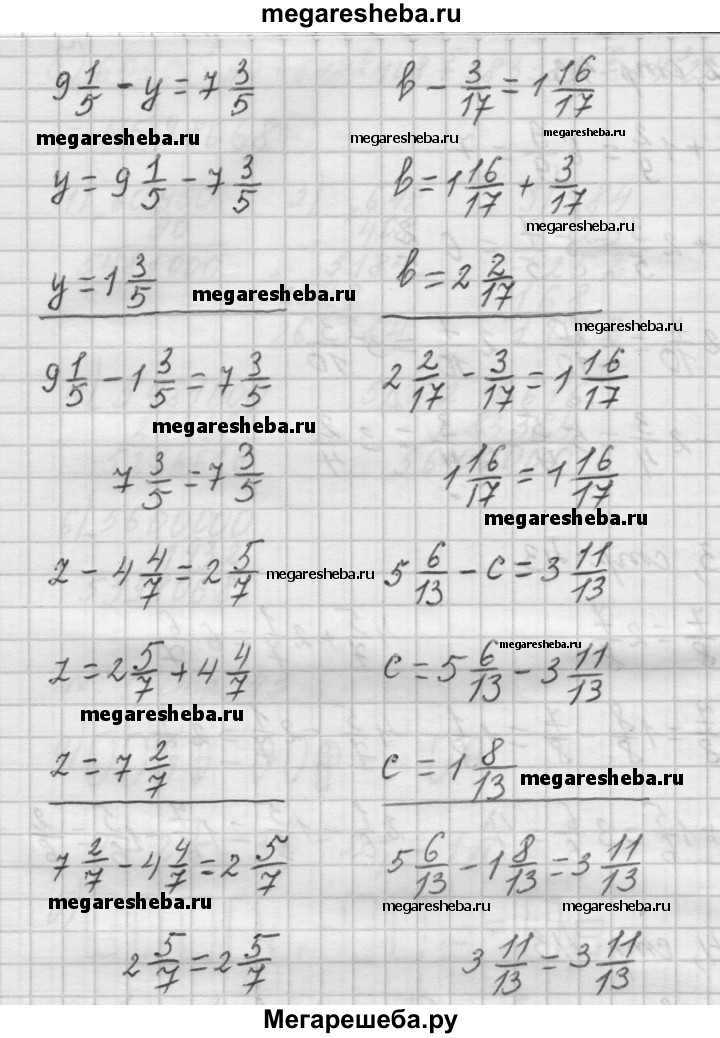 megaresheba.ru
9 1/5 − y = 7 3/5
megaresheba.ru
y = 9 1/5 − 7 3/5
y = 1 3/5
megaresheba.ru
9 1/5 − 1 3/5 = 7 3/5
megaresheba.ru
7 3/5 = 7 3/5
z − 4 4/7 = 2 5/7
megaresheba.ru
z = 2 5/7 + 4 4/7
megaresheba.ru
z = 7 2/7
7 2/7 − 4 4/7 = 2 5/7
megaresheba.ru
2 5/7 = 2 5/7
b − 3/17 = 1 16/17
megaresheba.ru
megaresheba.ru
b = 1 16/17 + 3/17
megaresheba.ru
b = 2 2/17
megaresheba.ru
2 2/17 − 3/17 = 1 16/17
1 16/17 = 1 16/17
megaresheba.ru
5 6/13 − c = 3 11/13
megaresheba.ru
c = 5 6/13 − 3 11/13
c = 1 8/13
megaresheba.ru
5 6/13 − 1 8/13 = 3 11/13
megaresheba.ru
megaresheba.ru
3 11/13 = 3 11/13
Мегарешеба.ру